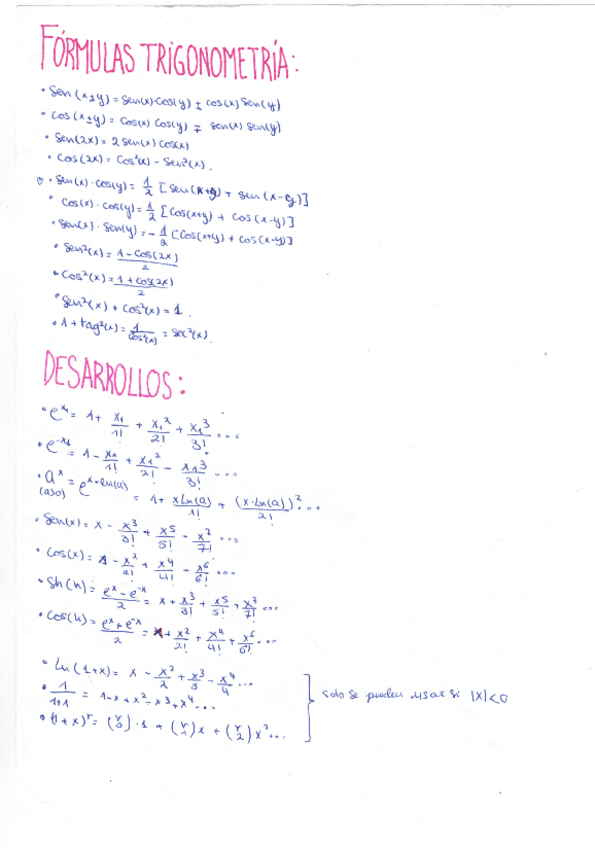 FÓRMULAS TRIGONOMETRÍA:
• Sen(x±y) = Sen(x)·Cos(y) ± cos(x) Sen(y)
• Cos(x±y) = Cos(x) Cos(y) ∓ Sen(x) Sen(y)
• Sen(2x) = 2 Sen(x) Cos(x)
• Cos(2x) = Cos²(x) - Sen²(x).
• Sen(x)·cos(y) = 1/2 [Sen(x+y) + Sen(x-y)]
• Cos(x)·cos(y) = 1/2 [Cos(x+y) + cos(x-y)]
• Sen(x)·Sen(y) = -1/2 [Cos(x+y) + cos(x-y)]
• Sen²(x) = 1-Cos(2x)/2
• Cos²(x) = 1+cos(2x)/2
• Sen²(x) + Cos²(x) = 1.
• 1+tag²(x) = 1/Cos²(x) = Sec²(x).
DESARROLLOS:
• e^x₁ = 1 + x₁/1! + x₁²/2! + x₁³/3! ...
• e^-x₁ = 1 - x₁/1! + x₁²/2! - x₁³/3! ...
• a^x = e^x·ln(a) = 1 + xLn(a)/1! + (x·Ln(a))²/2! ...
(a>0)
• Sen(x) = x - x³/3! + x⁵/5! - x⁷/7! ...
• Cos(x) = 1 - x²/2! + x⁴/4! - x⁶/6! ...
• Sh(x) = e^x - e^-x/2 = x + x³/3! + x⁵/5! + x⁷/7! ...
• Cos(h) = e^x + e^-x/2 = 1 + x²/2! + x⁴/4! + x⁶/6! ...
• Ln(1+x) = x - x²/2 + x³/3 - x⁴/4 ...
• 1/1+1 = 1-x+x²-x³+x⁴...
solo se pueden usar si |x|<0
• (1+x)^r = (r 0)·1 + (r 1)x + (r 2)x² ...